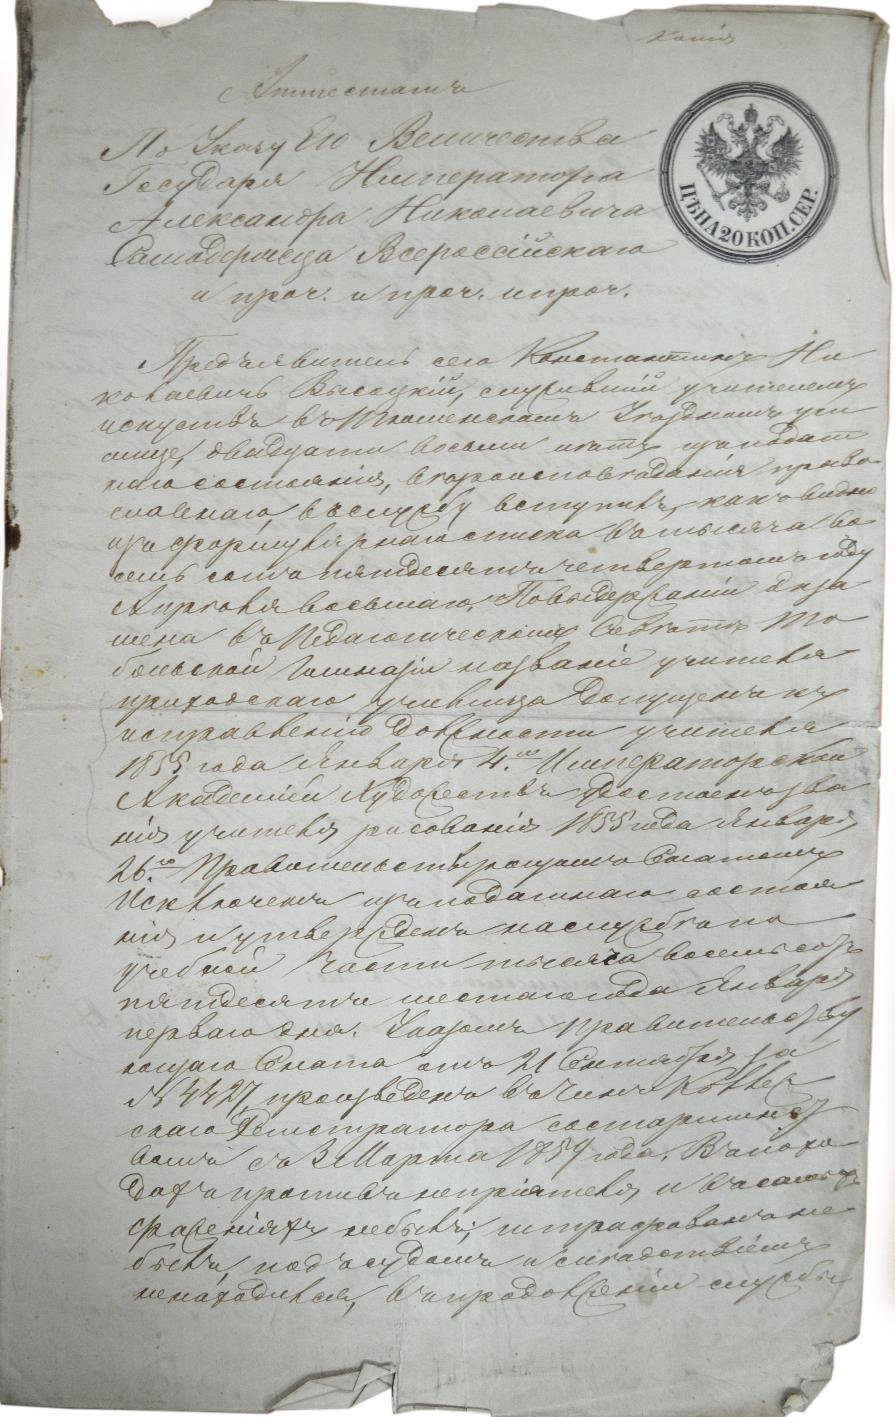 Копія
Аттестатъ
ЦѢНА 20 КОП. СЕР.
По Указу Его Величества
Государя Императора
Александра Николаевича
Самодержца Всероссійскаго
и проч. и проч. и проч.
Предъявитель сего Константинъ Ни
колаевичь Высоцкій, служившій учителемъ
искуствъ въ Тюменскомъ Уѣздномъ учи
лище, двадцати восьми лѣтъ изъ подат
наго состоянія, вѣроисповѣданія право
славнаго, въ службу вступилъ, какъ видно
изъ формулярнаго списка въ тысяча во
семь сотъ пятдесятъ четвертомъ году
Апрѣля восьмаго. По выдержаніи экза
мена въ Педагогическомъ Совѣтѣ То
больской Гимназіи название учителя
приходскаго училища допущенъ къ
исправленію должности учителя
1855 года Января 4.го Императорской
Академіи Художествъ удостоенъ зва
нія учителя рисованія 1855 года Января
26.го Правительствующимъ Сенатомъ
Исключенъ изъ податнаго состоя
нія и утвержденъ на службѣ по
учебной части тысяча восемьсотъ
пятдесятъ шестаго года Января
перваго дня. Указомъ Правительству
ющаго Сената отъ 21 Сентября за
№ 4427, произведенъ въ Чинъ Коллеж
скаго Регистратора со старшинст
вомъ съ 3 Марта 1854 года. Въ похо
дахъ противъ непріятеля и въ самыхъ
сраженіяхъ не былъ; штрафованъ не
былъ, подъ судомъ и слѣдствіемъ
не находился, въ продолженіи службы